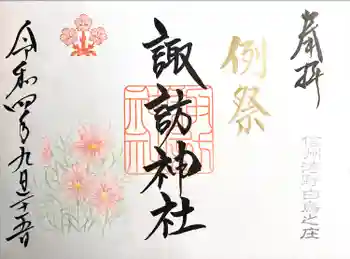 奉拝
信州 白鳥之庄
例祭
諏訪神社
令和四年九月二十五日